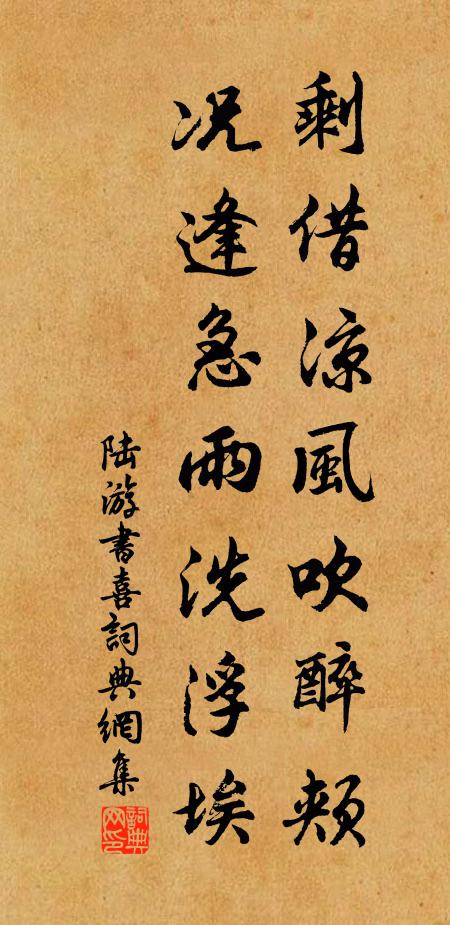 剩借凉風吹醉頰
况逢急雨洗浮埃
陆游書喜詞典網集
詞典网印